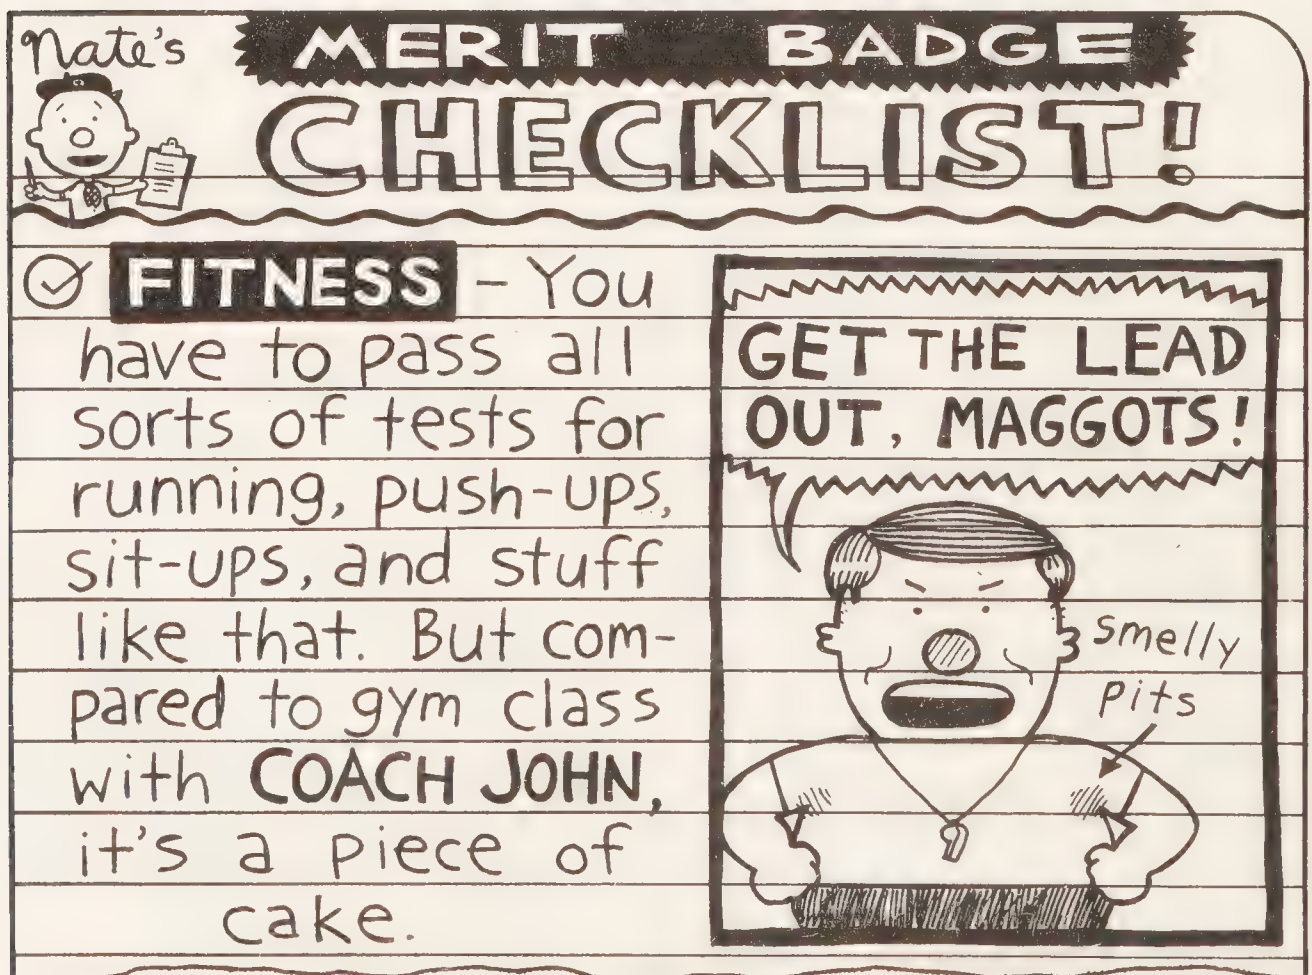 Nate's
MERIT BADGE
CHECKLIST!
FITNESS - You
have to pass all
sorts of tests for
running, push-ups,
sit-ups, and stuff
like that. But com-
pared to gym class
with COACH JOHN,
it's a piece of
cake.
GET THE LEAD
OUT, MAGGOTS!
smelly
pits